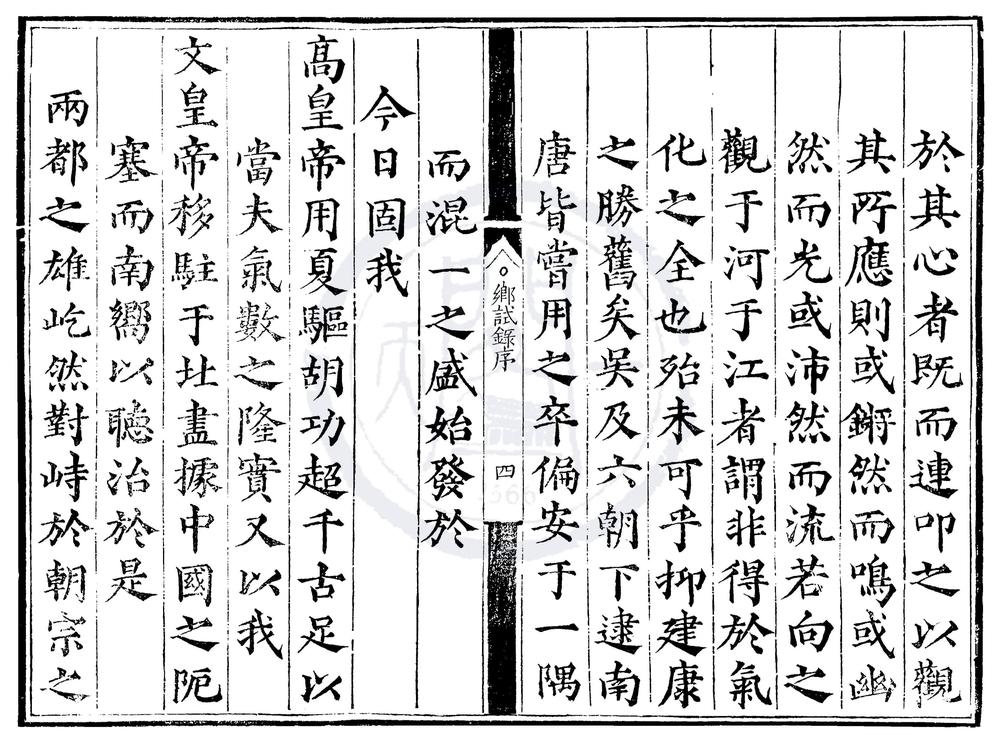 於其心者既而連叩之以觀
其所應則或鏘然而鳴或幽
然而光或沛然而流若向之
觀于河于江者謂非得於氣
化之全也殆未可乎抑建康
之勝舊矣吳及六朝下逮南
唐皆嘗用之卒偏安于一隅
鄉試錄序
四
而混一之盛始發於
今日固我
高皇帝用夏驅胡功超千古足以
當夫氣數之隆實又以我
文皇帝移駐于北盡據中國之阨
塞而南嚮以聽治於是
兩都之雄屹然對峙於朝宗之